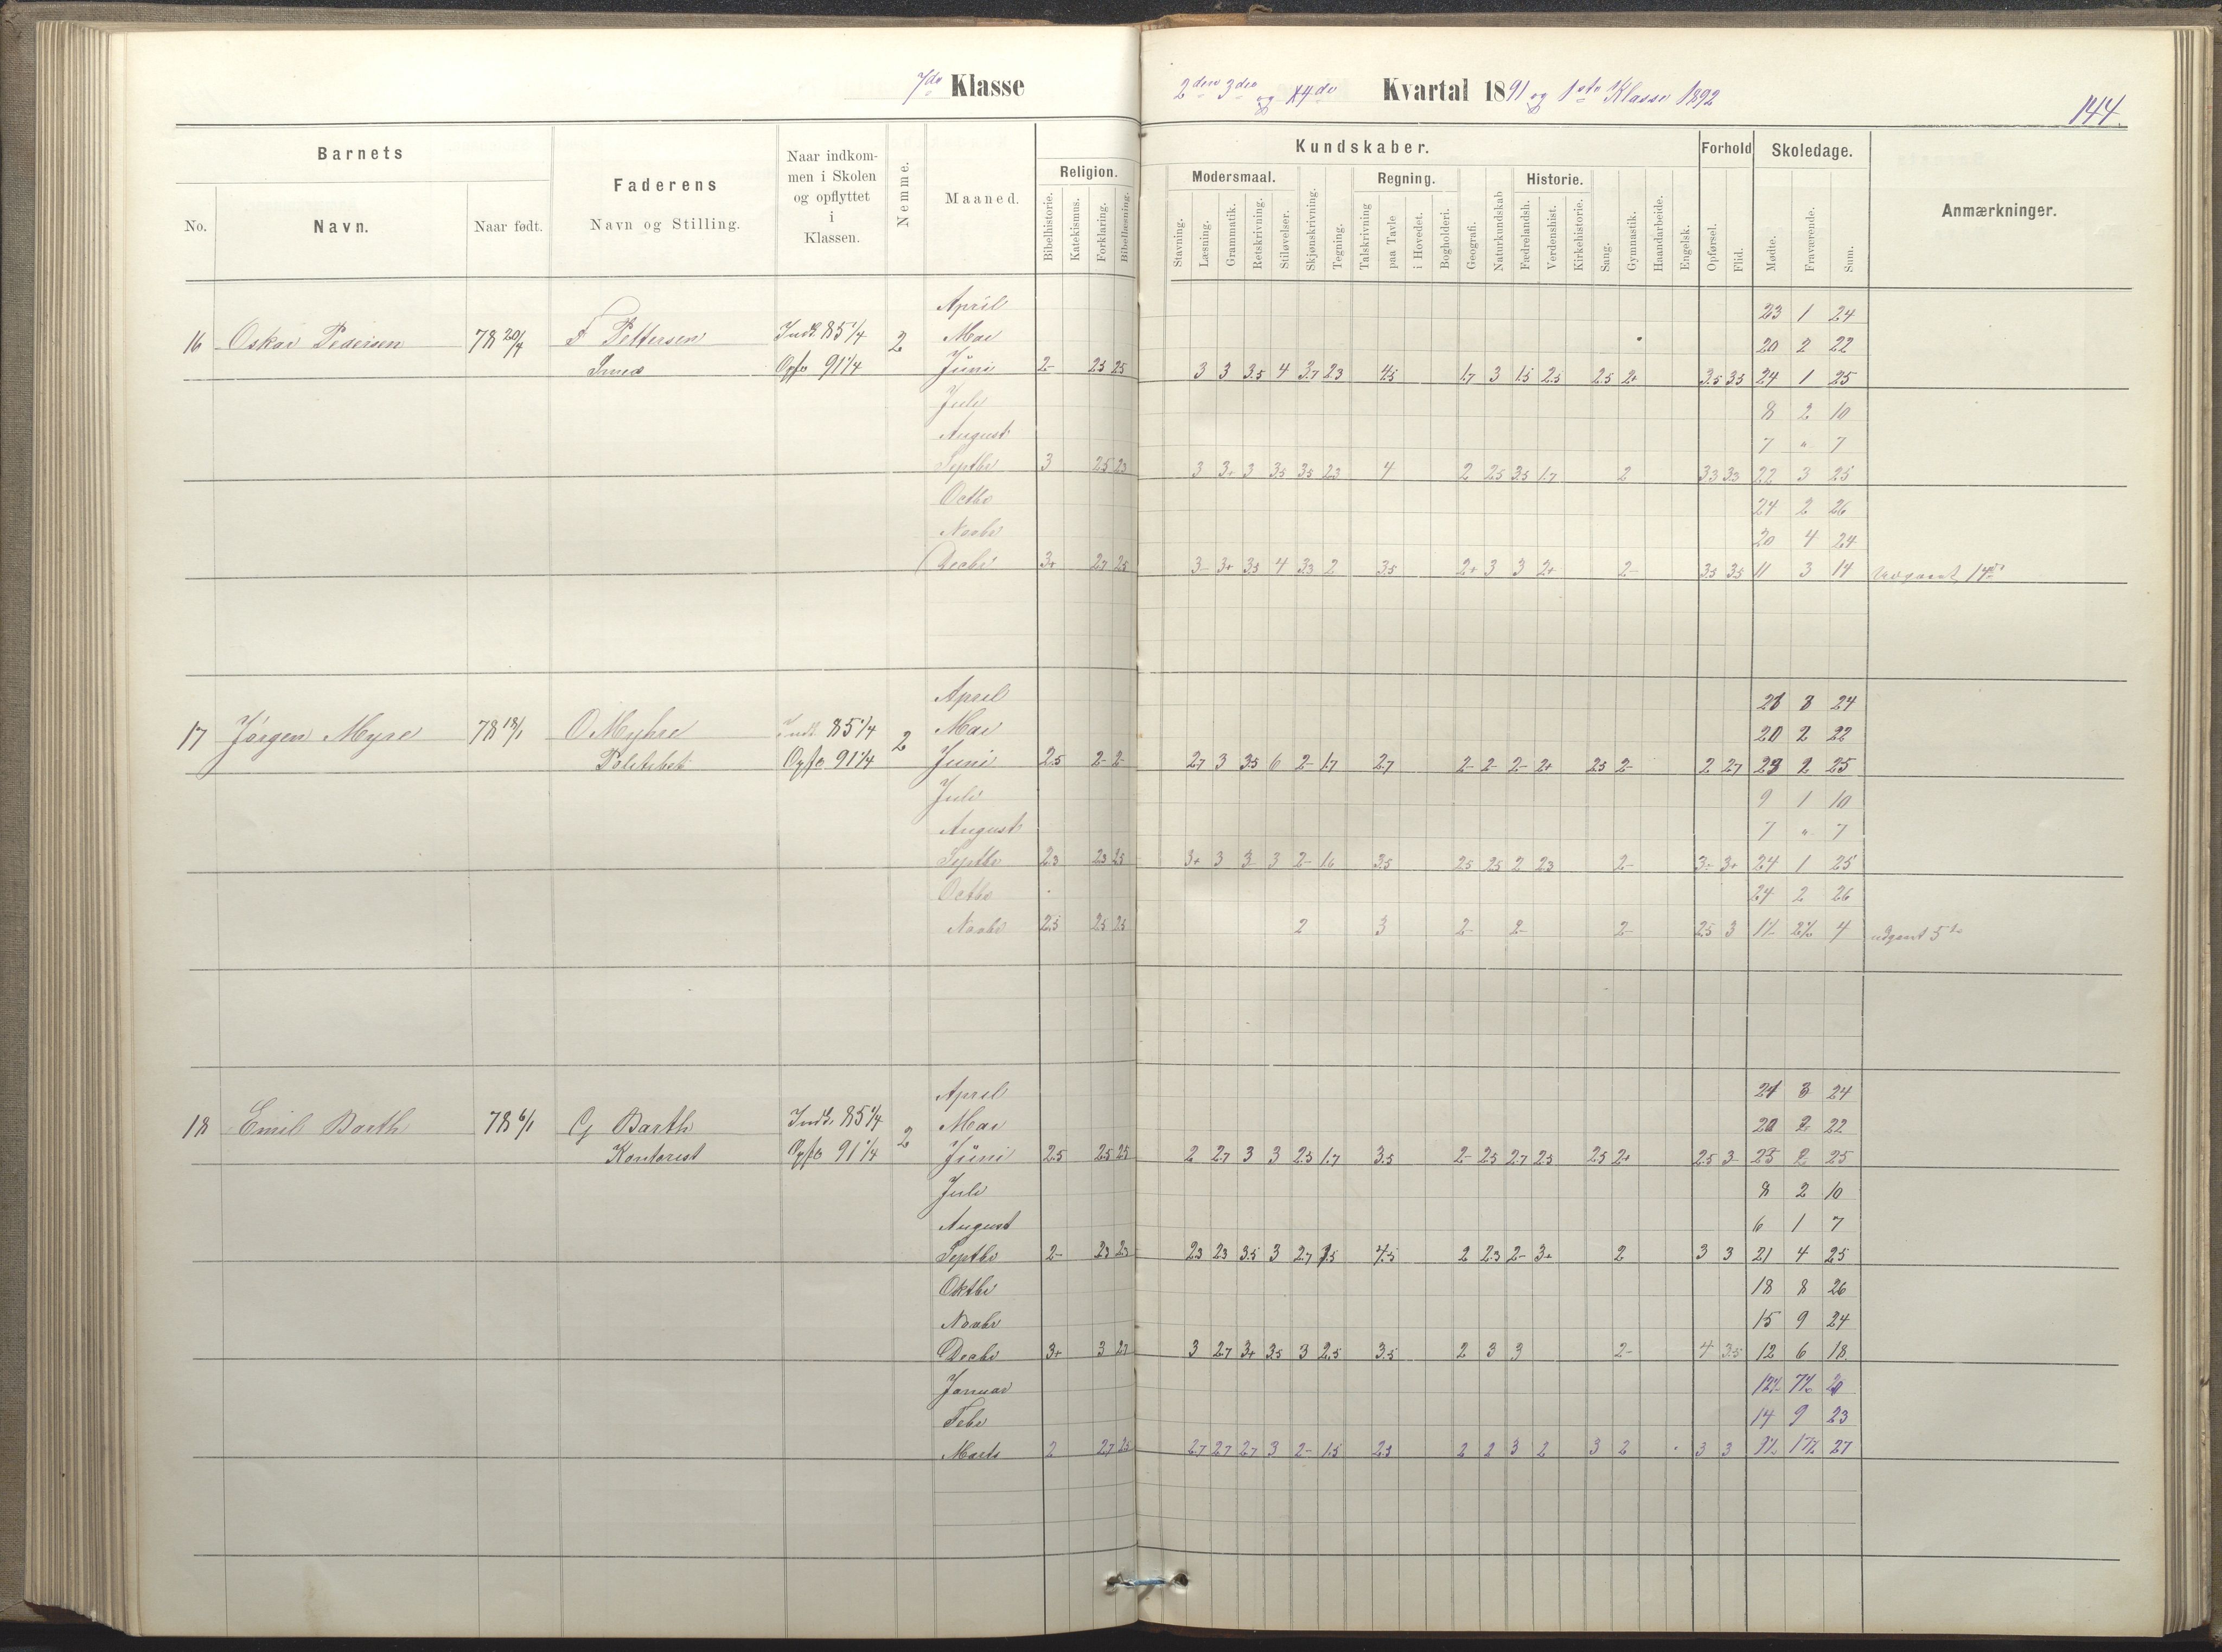 7de Klasse
2den 3die og 4de Kvartal 1891 og 1ste Klasse 1892
144.
Barnets
No.
Navn.
Naar født.
Faderens
Navn og Stilling.
Naar indkom-
men i Skolen
og opflyttet
i
Klassen.
Nemme.
Maaned.
Kundskaber.
Religion.
Bibelhistorie.
Katekismus.
Forklaring.
Bibellæsning.
Modersmaal.
Stavning.
Læsning.
Grammatik.
Retskrivning.
Stiløvelser.
Skjønskrivning.
Tegning.
Regning.
Talskrivning
paa Tavle
i Hovedet.
Bogholderi.
Geografi.
Naturkundskab
Historie.
Fædrelandsh.
Verdenshist.
Kirkehistorie.
Sang.
Gymnastik.
Haandarbeide.
Engelsk.
Forhold
Opførsel.
Flid.
Skoledage.
Mødte.
Fraværende.
Sum.
Anmærkninger.
April 23 1 24
16 Oskar Pedersen 78 20/4 F Pettersen Indk 85 1/4 2 Mai 20 2 22
Smed Opfl 91 1/4 Juni 2- 2.5 2.5 3 3 3.5 4 3.7 2.3 4.5 1.7 3 1.5 2.5 2.5 2+ 3.5 3.5 24 1 25
Juli 8 2 10
August 7 " 7
Septbr 3 2.5 2.3 3 3+ 3 3.5 3.5 2.3 4 2 2.5 3.5 1.7 2 3.3 3.3 22 3 25
Octbr 24 2 26
Novbr 20 4 24
Decbr 3+ 2.7 2.5 3- 3+ 3.5 4 3.3 2 3.5 2+ 3 3 2+ 2- 3.5 3.5 11 3 14
April 21 3 24
17 Jörgen Myre 78 18/1 O Myhre Indk 85 1/4 2 Mai 20 2 22
Politibet Opfl 91 1/4 Juni 2.5 2- 2- 2.7 3 3.5 6 2- 1.7 2.7 2- 2- 2- 2+ 2.5 2- 2 2.7 23 2 25
Juli 9 1 10
August 7 " 7
Septbr 2.3 2.3 2.5 3+ 3 3 3 2- 1.6 3.5 2.5 2.5 2 2.3 2- 3- 3+ 24 1 25
Octbr 24 2 26
Novbr 2.5 2.5 2.5 2 3 2- 2- 2- 2.5 3 1½ 2½ 4 udgaaet 5te
April 21 3 24
18 Emil Barth 78 6/1 G Barth Indk. 85 1/4 2 Mai 20 2 22
Kontorist Opfl 91 1/4 Juni 2.5 2.5 2.5 2 2.7 3 3 2.3 1.7 3.5 2- 2.5 2.7 2.5 2.5 2+ 2.5 3- 23 2 25
Juli 8 2 10
August 6 1 7
Septbr 2- 2.3 2.3 2.3 2.3 3.5 3 2.7 4.5 2 2.3 2- 3+ 2 3 3 21 4 25
Oktbr 18 8 26
Novbr 15 9 24
Decbr 3+ 3 2.7 3 2.7 3+ 3.5 3 2.5 3.5 2 3 3 2- 4 3.5 12 6 18
Januar 12½ 7½ 20
Febr 14 9 23
Marts 2 2.7 2.5 2.7 2.7 2.7 3 2- 1.5 2.3 2 2 3 2 3 2 3 3 9½ 17½ 27